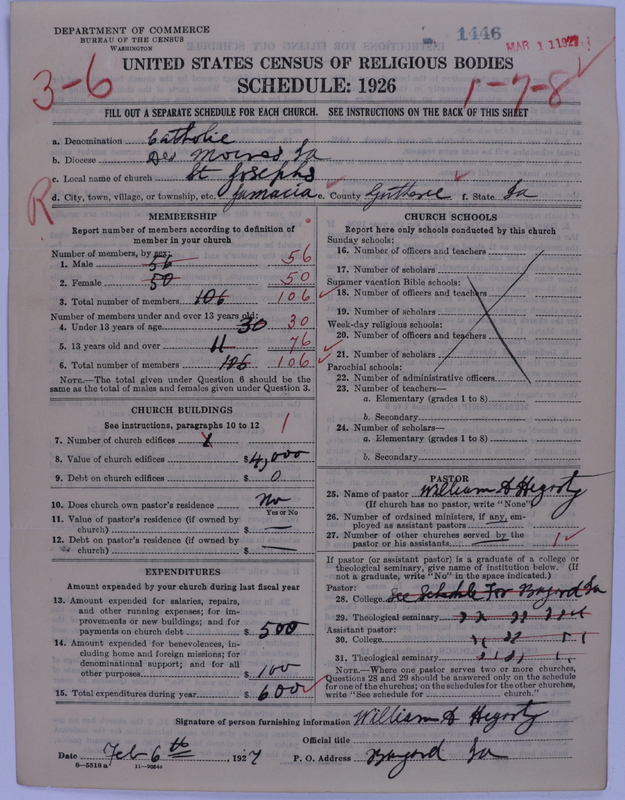 DEPARTMENT OF COMMERCE
BUREAU OF THE CENSUS
WASHINGTON
1446
MAR 1 1 1927
UNITED STATES CENSUS OF RELIGIOUS BODIES
SCHEDULE: 1926
3-6
1-7-8
FILL OUT A SEPARATE SCHEDULE FOR EACH CHURCH. SEE INSTRUCTIONS ON THE BACK OF THIS SHEET
a. Denomination Catholic
b. Diocese Des Moines Ia
c. Local name of church St Josephs
d. City, town, village, or township, etc. Jamacia e. County Guthrie f. State Ia
R
MEMBERSHIP
Report number of members according to definition of
member in your church
Number of members, by sex:
1. Male 56 56
2. Female 50 50
3. Total number of members 106 106
Number of members under and over 13 years old:
4. Under 13 years of age 30 30
5. 13 years old and over 76
6. Total number of members 106 106
NOTE.—The total given under Question 6 should be
the same as the total of males and females given under Question 3.
CHURCH BUILDINGS
See instructions, paragraphs 10 to 12
7. Number of church edifices 1 1
8. Value of church edifices $4,000
9. Debt on church edifices $ 0
10. Does church own pastor's residence No
Yes or No
11. Value of pastor's residence (if owned by
church) $ —
12. Debt on pastor's residence (if owned by
church) $ —
EXPENDITURES
Amount expended by your church during last fiscal year
13. Amount expended for salaries, repairs,
and other running expenses; for im-
provements or new buildings; and for
payments on church debt $ 500
14. Amount expended for benevolences, in-
cluding home and foreign missions; for
denominational support; and for all
other purposes $ 100
15. Total expenditures during year $ 600
CHURCH SCHOOLS
Report here only schools conducted by this church
Sunday schools:
16. Number of officers and teachers
17. Number of scholars
Summer vacation Bible schools:
18. Number of officers and teachers
19. Number of scholars
Week-day religious schools:
20. Number of officers and teachers
21. Number of scholars
Parochial schools:
22. Number of administrative officers
23. Number of teachers—
a. Elementary (grades 1 to 8)
b. Secondary
24. Number of scholars—
a. Elementary (grades 1 to 8)
b. Secondary
PASTOR
25. Name of pastor William A Hegarty
(If church has no pastor, write "None")
26. Number of ordained ministers, if any, em-
ployed as assistant pastors
27. Number of other churches served by the
pastor or his assistants 1
If pastor (or assistant pastor) is a graduate of a college or
theological seminary, give name of institution below. (If
not a graduate, write "No" in the space indicated.)
Pastor:
28. College See Schedule For Bayard Ia
29. Theological seminary
Assistant pastor:
30. College
31. Theological seminary
NOTE.—Where one pastor serves two or more churches,
Questions 28 and 29 should be answered only on the schedule
for one of the churches; on the schedules for the other churches,
write "See schedule for church."
Signature of person furnishing information William A Hegarty
Official title
Date Feb 6th, 1927 P. O. Address Bayard Ia
8—5518 a 11—9084a